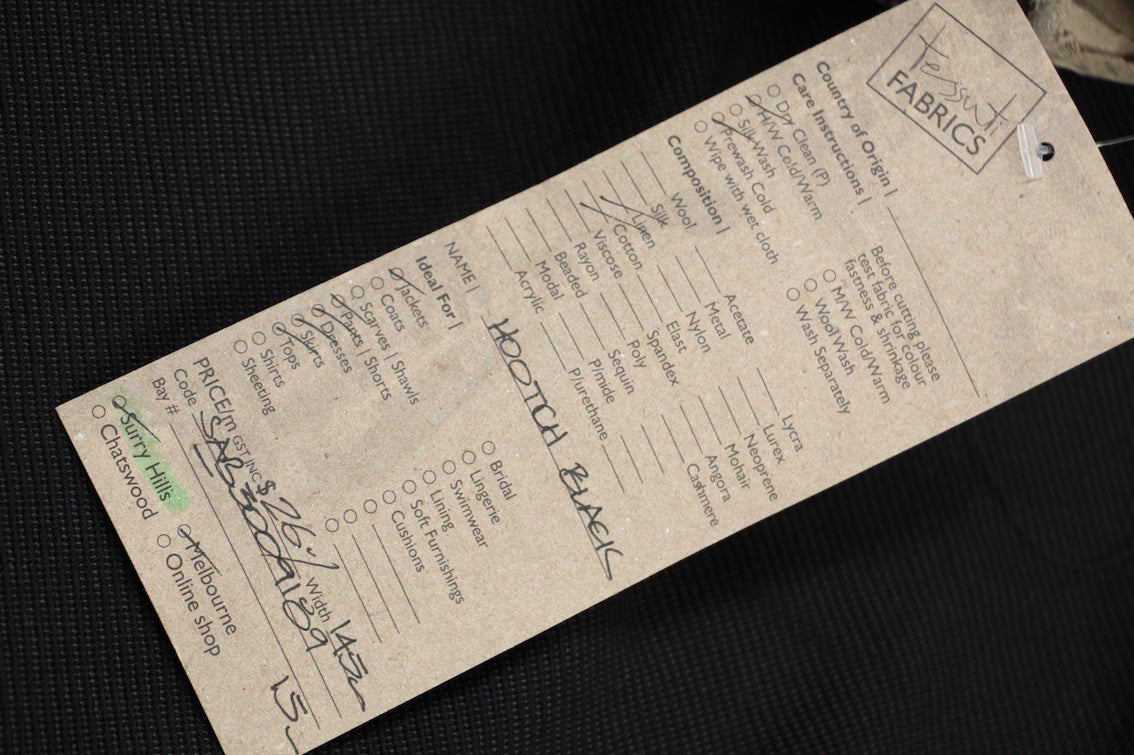 tessuti
FABRICS
Country of Origin |
Care Instructions |
Dry Clean (P)
H/W Cold/Warm
Silk Wash
Prewash Cold
Wipe with wet cloth
Before cutting please
test fabric for colour
fastness & shrinkage
M/W Cold/Warm
Wool Wash
Wash Separately
Composition |
Wool
Silk
Linen
Cotton
Viscose
Rayon
Beaded
Modal
Acrylic
Acetate
Metal
Nylon
Elast
Spandex
Poly
Sequin
P/mide
P/urethane
Lycra
Lurex
Neoprene
Mohair
Angora
Cashmere
NAME | HOOTCH BLACK
Ideal For |
Jackets
Coats
Scarves | Shawls
Pants | Shorts
Dresses
Skirts
Tops
Shirts
Sheeting
Bridal
Lingerie
Swimwear
Lining
Soft Furnishings
Cushions
PRICE/m GST INC $26 Width 145
Code
Bay # 15
Surry Hills
Chatswood
Melbourne
Online shop